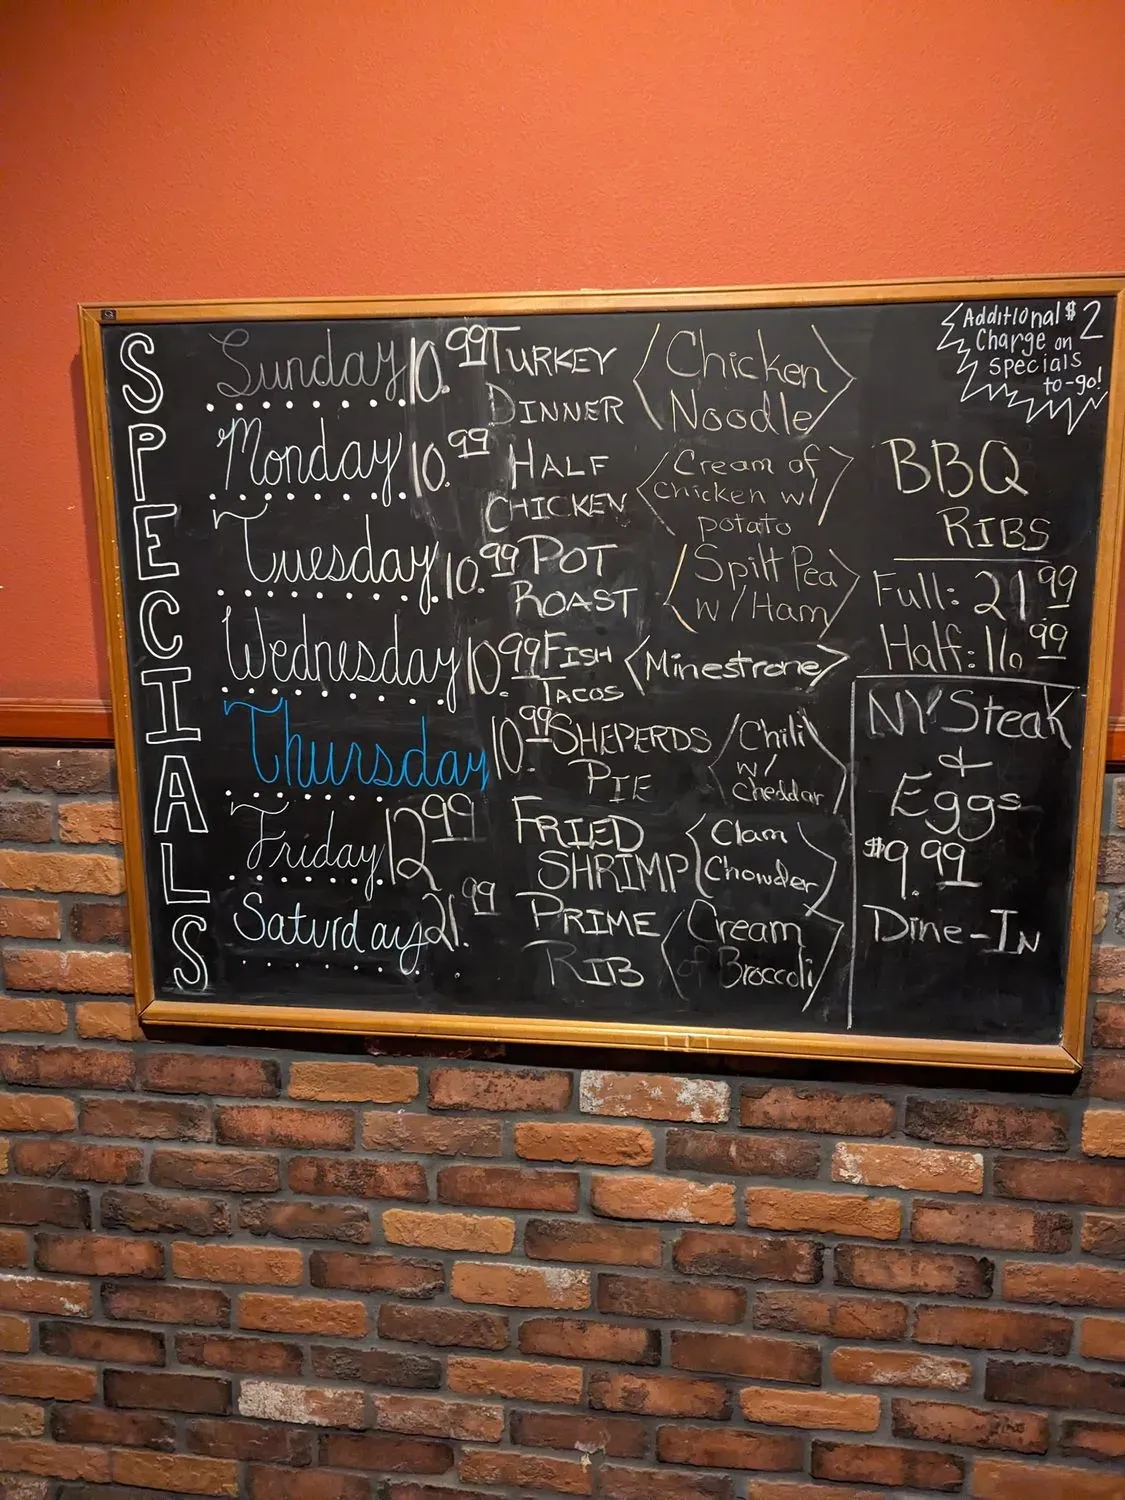 SPECIALS
Sunday 10.99 TURKEY DINNER
Chicken Noodle
Monday 10.99 HALF CHICKEN
Cream of chicken w/ potato
Tuesday 10.99 POT ROAST
Spilt Pea w/ Ham
Wednesday 10.99 FISH TACOS
Minestrone
Thursday 10.99 SHEPERDS PIE
Chili w/ Cheddar
Friday 12.99 FRIED SHRIMP
Clam Chowder
Saturday 21.99 PRIME RIB
Cream of Broccoli
Additional $2
Charge on
specials
to-go!
BBQ
RIBS
Full: 21.99
Half: 16.99
NY Steak
&
Eggs
$9.99
Dine-IN